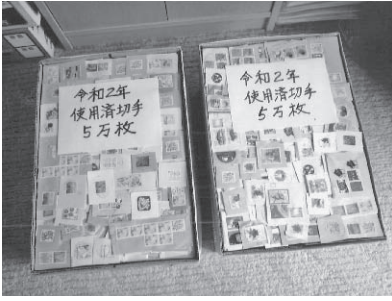 令和2年
使用済切手
5万枚
令和2年
使用済切手
5万枚